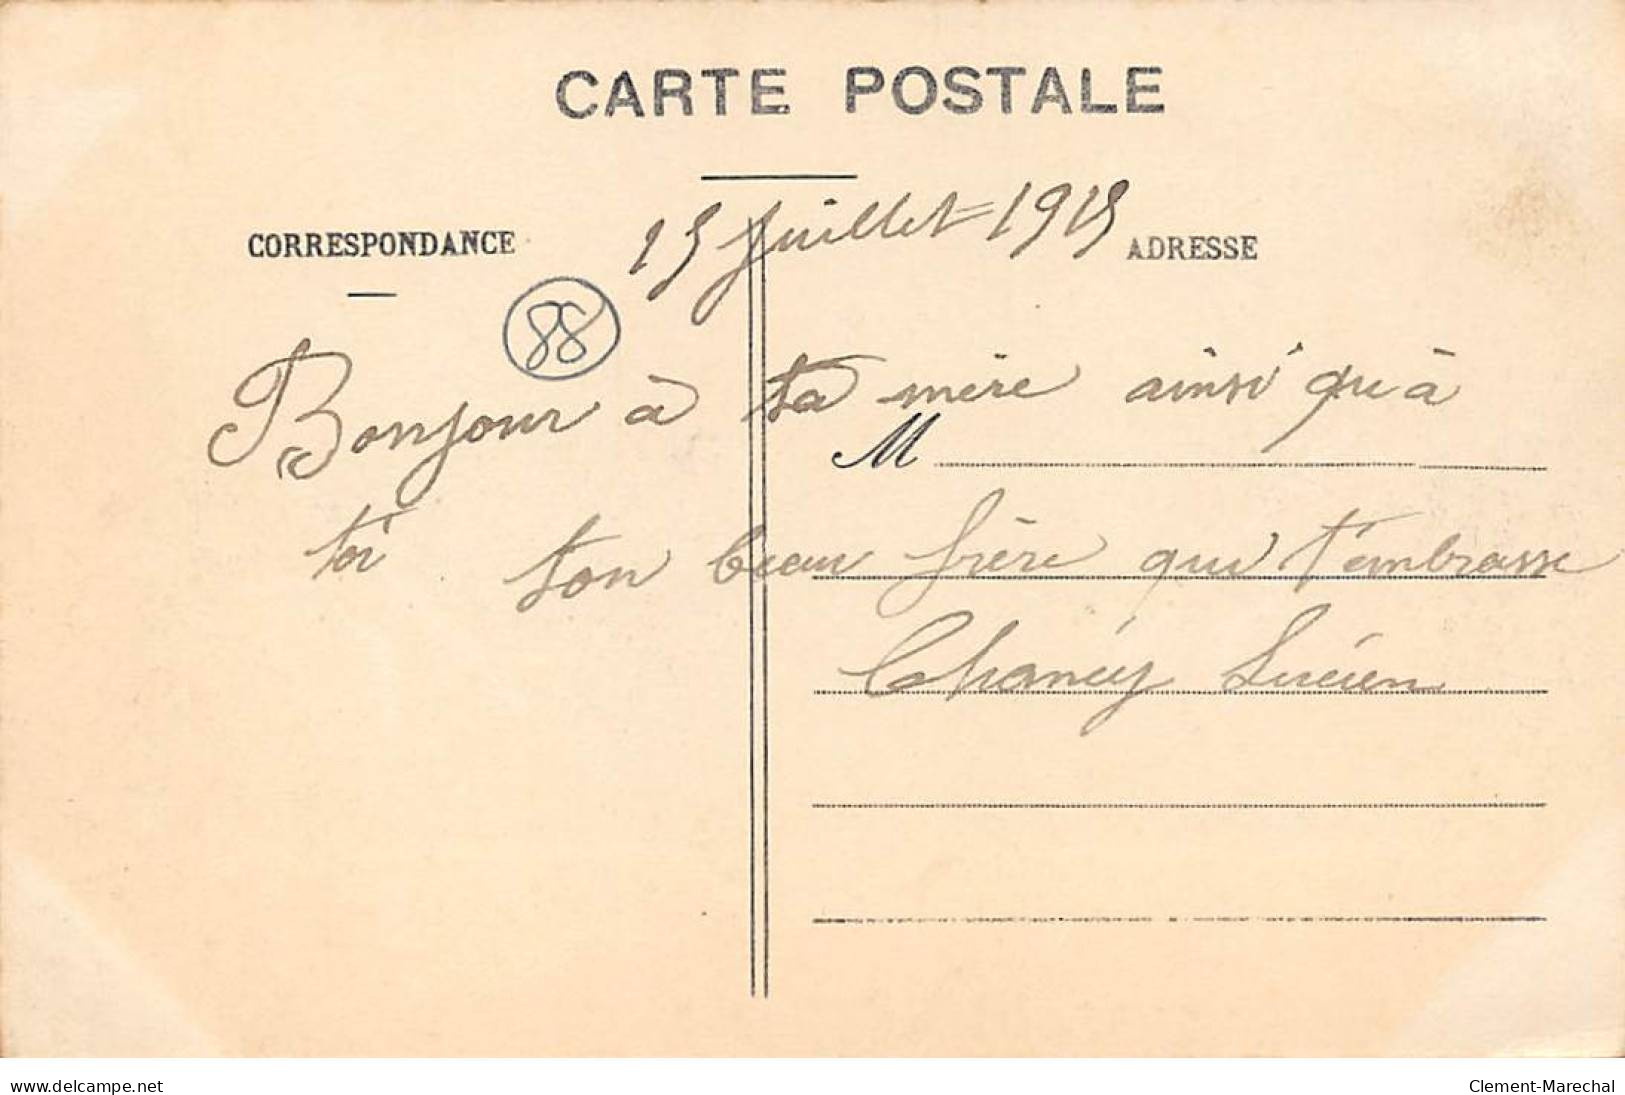 CARTE POSTALE
CORRESPONDANCE
15 juillet 1915
ADRESSE
88
Bonjour à ta mère ainsi qu'à
M
toi ton beau frère qui t'embrasse
Lucien
www.delcampe.net
Clement-Marechal